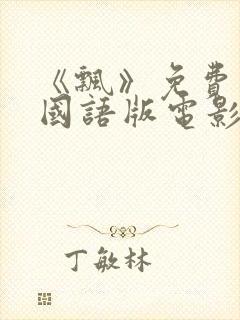 《飄》免費
國語版電影
丁敏林